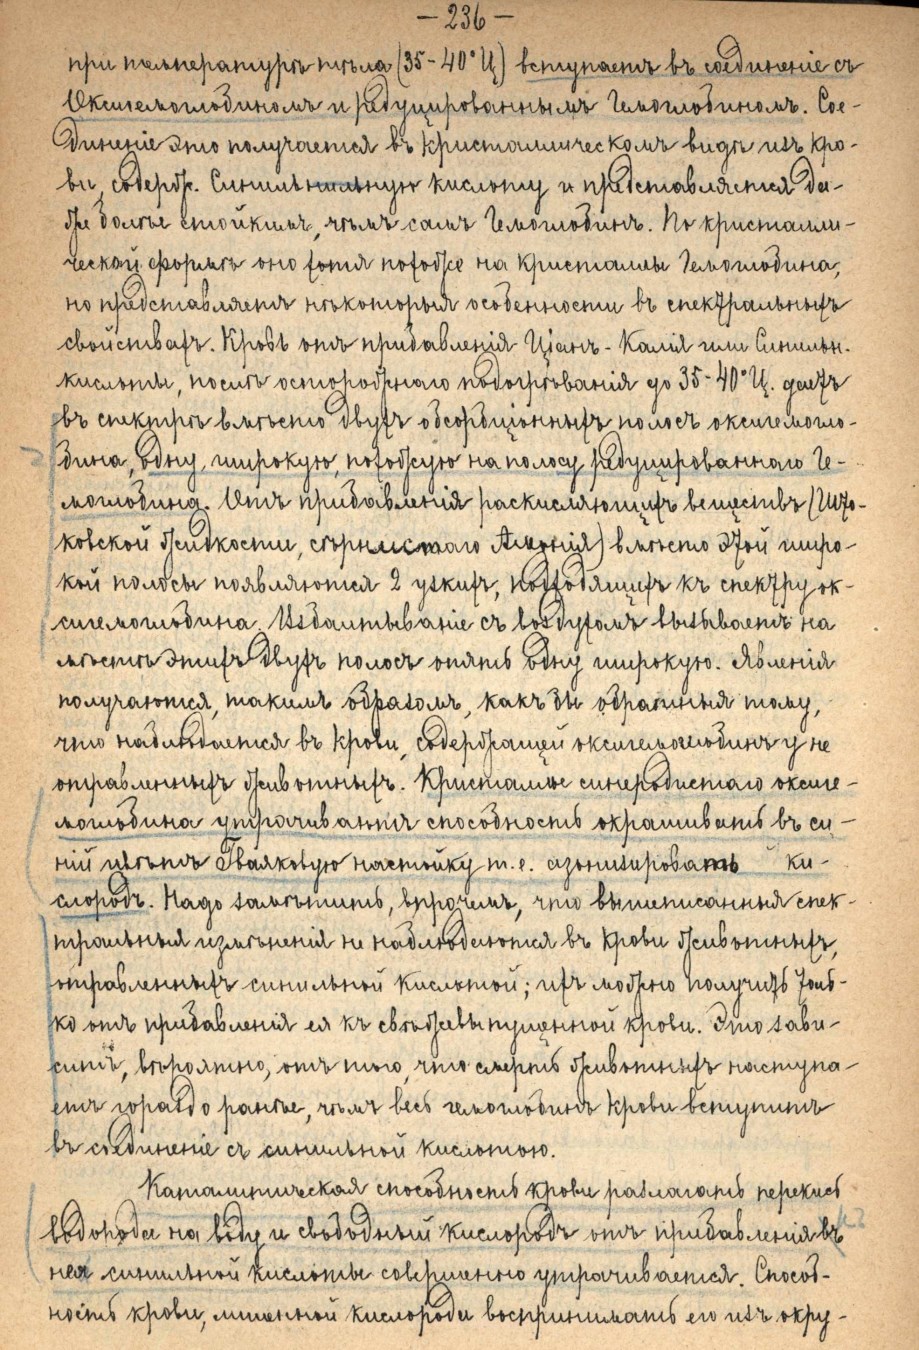 — 236 —
при температурѣ тѣла (35-40°Ц) вступаетъ въ соединеніе съ
Оксигемоглобиномъ и редуцированнымъ Гемоглобиномъ. Сое-
диненіе это получается въ кристаллическомъ видѣ изъ кро-
ви, содерж. Синильную кислоту и представляется да-
же болѣе стойкимъ, чѣмъ самъ Гемоглобинъ. По кристалли-
ческой формѣ оно хотя похоже на кристаллы Гемоглобина,
но представляетъ нѣкоторыя особенности въ спектральныхъ
свойствахъ. Кровь отъ прибавленія Ціанъ-Калія или Синильн.
кислоты, послѣ осторожнаго подогрѣванія до 35-40°Ц. даетъ
въ спектрѣ вмѣсто двухъ абсорбціонныхъ полосъ оксигемогло-
бина, одну, широкую, похожую на полосу редуцированнаго Ге-
моглобина. Отъ прибавленія раскисляющихъ веществъ (Што-
ковской жидкости, сѣрнистаго Аммонія) вмѣсто этой широ-
кой полосы появляются 2 узкихъ, подходящихъ къ спектру ок-
сигемоглобина. Избалтываніе съ воздухомъ вызываетъ на
мѣстѣ этихъ двухъ полосъ опять одну широкую. Явленія
получаются, такимъ образомъ, какъ бы обратныя тому,
что наблюдается въ крови, содержащей оксигемоглобинъ у не
отравленныхъ животныхъ. Кристаллы синеродистаго оксиге-
моглобина утрачиваютъ способность окрашивать въ си-
ній цвѣтъ Гваяковую настойку т.е. азонизировать ки-
слородъ. Надо замѣтить, впрочемъ, что вышеписанныя спек-
тральныя измѣненія не наблюдаются въ крови животныхъ,
отравленныхъ синильной кислотой; ихъ можно получить толь-
ко отъ прибавленія ея къ свѣжевыпущенной крови. Это зави-
ситъ, вѣроятно, отъ того, что смерть животныхъ наступа-
етъ гораздо ранѣе, чѣмъ весь гемоглобинъ крови вступитъ
въ соединеніе съ синильной кислотою.
Каталитическая способность крови разлагать перекись
водорода на воду и свободный кислородъ отъ прибавленія въ
нея синильной кислоты совершенно утрачивается. Способ-
ность крови, лишенной кислорода воспринимать его изъ окру-